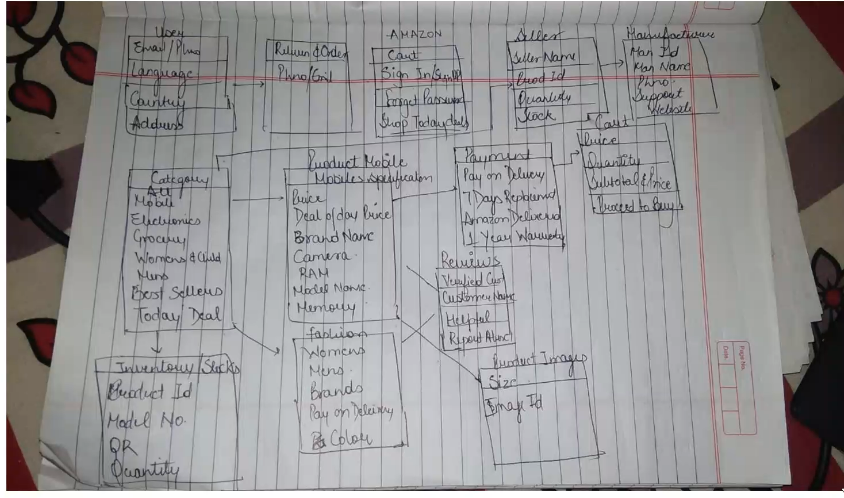 User
Email/Phno
Language
Country
Address
Return & Order
Phno/Email
AMAZON
Cart
Sign In/SignUp
Forget Password
Shop Today deals
Seller
Seller Name
Prod Id
Quantity
Stock
Manufacturer
Man Id
Man Name
Phno.
Support
Website
Cart
Price
Quantity
Subtotal & Price
Proceed to Buy
Category
All
Mobile
Electronics
Grocery
Womens & Child
Mens
Best Sellers
Today Deal
Product Mobile
Mobiles specification
Price
Deal of day Price
Brand Name
Camera
RAM
Model Name
Memory
Payment
Pay on Delivery
7 Days Replacement
Amazon Delivered
1 Year Warranty
Reviews
Verified Cust
Customer Name
Helpful
Report Abuse
Inventory/Stocks
Product Id
Model No.
QR
Quantity
fashion
Womens
Mens
Brands
Pay on Delivery
Color
Product Images
Size
Image Id
Page No.
Date